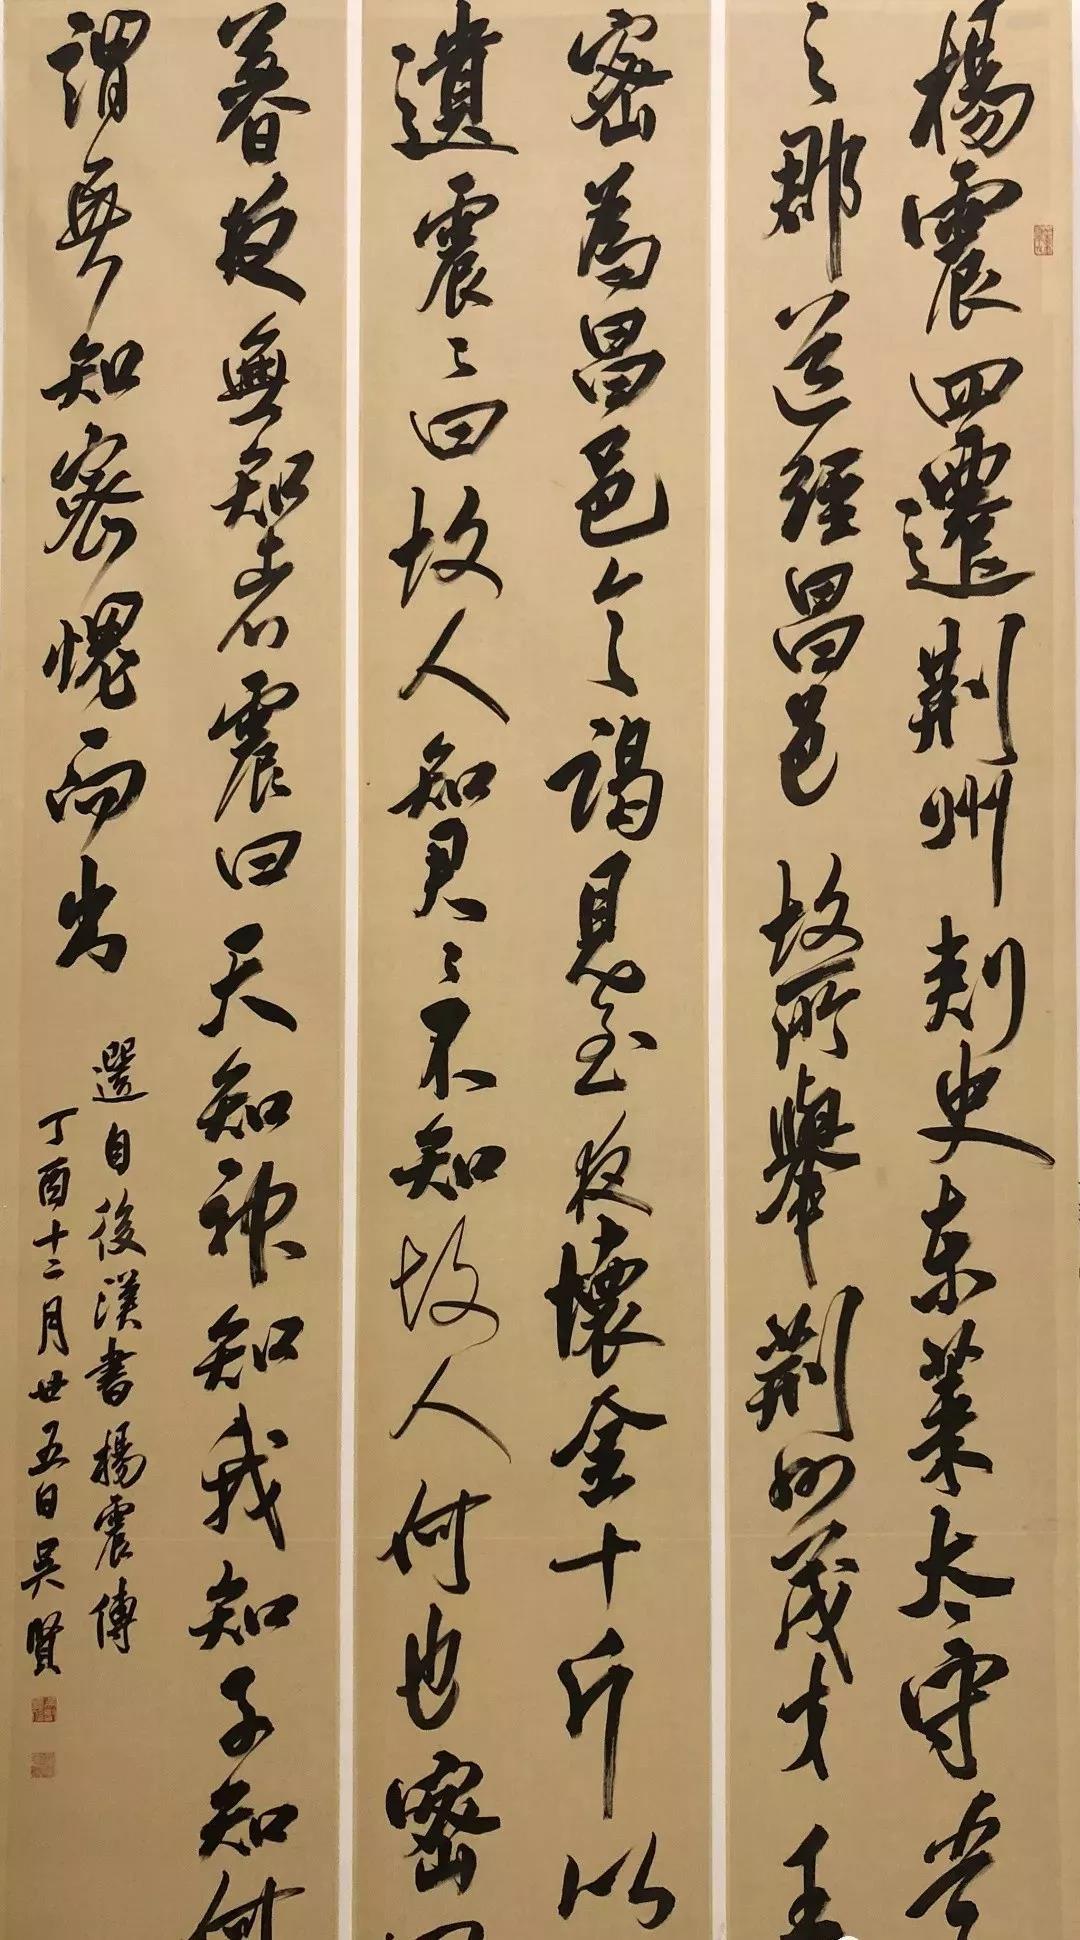 楊震四遷荆州刺史東萊太守當
之郡道經昌邑故所舉荆州茂才王
密為昌邑令謁見至夜懷金十斤以
遺震〻曰故人知君〻不知故人何也密曰
暮夜無知者震曰天知神知我知子知何
謂無知密愧而出
選自後漢書楊震傳
丁酉十二月廿五日吴賢